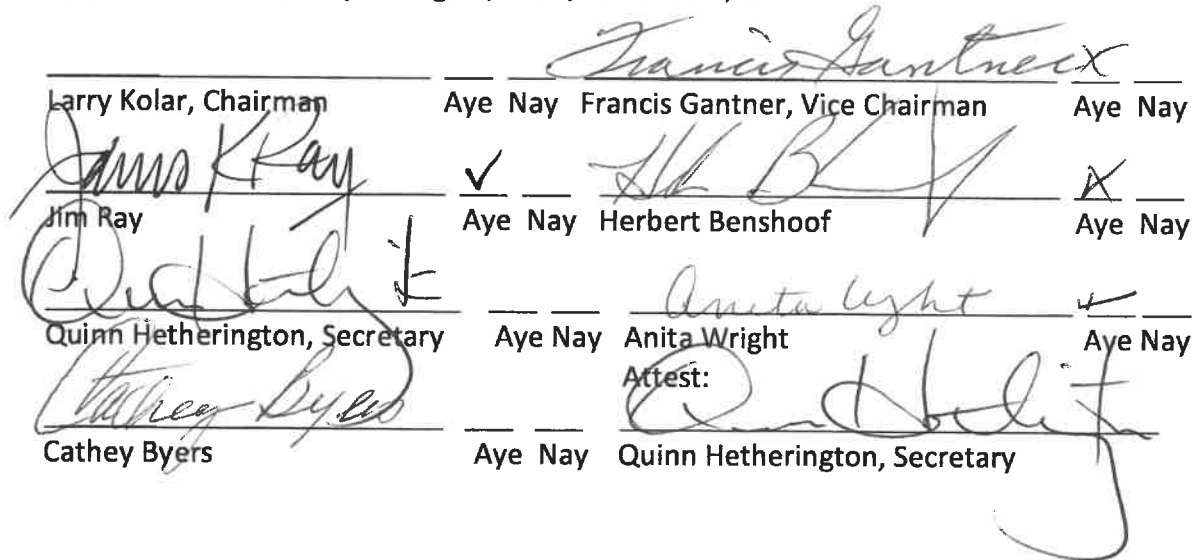 Francis Gantner X
Larry Kolar, Chairman Aye Nay Francis Gantner, Vice Chairman Aye Nay
James K Ray ✓ X
Jim Ray Aye Nay Herbert Benshoof Aye Nay
Anita Wright ✓
Quinn Hetherington, Secretary Aye Nay Anita Wright Aye Nay
Attest:
Cathey Byers
Cathey Byers Aye Nay Quinn Hetherington, Secretary